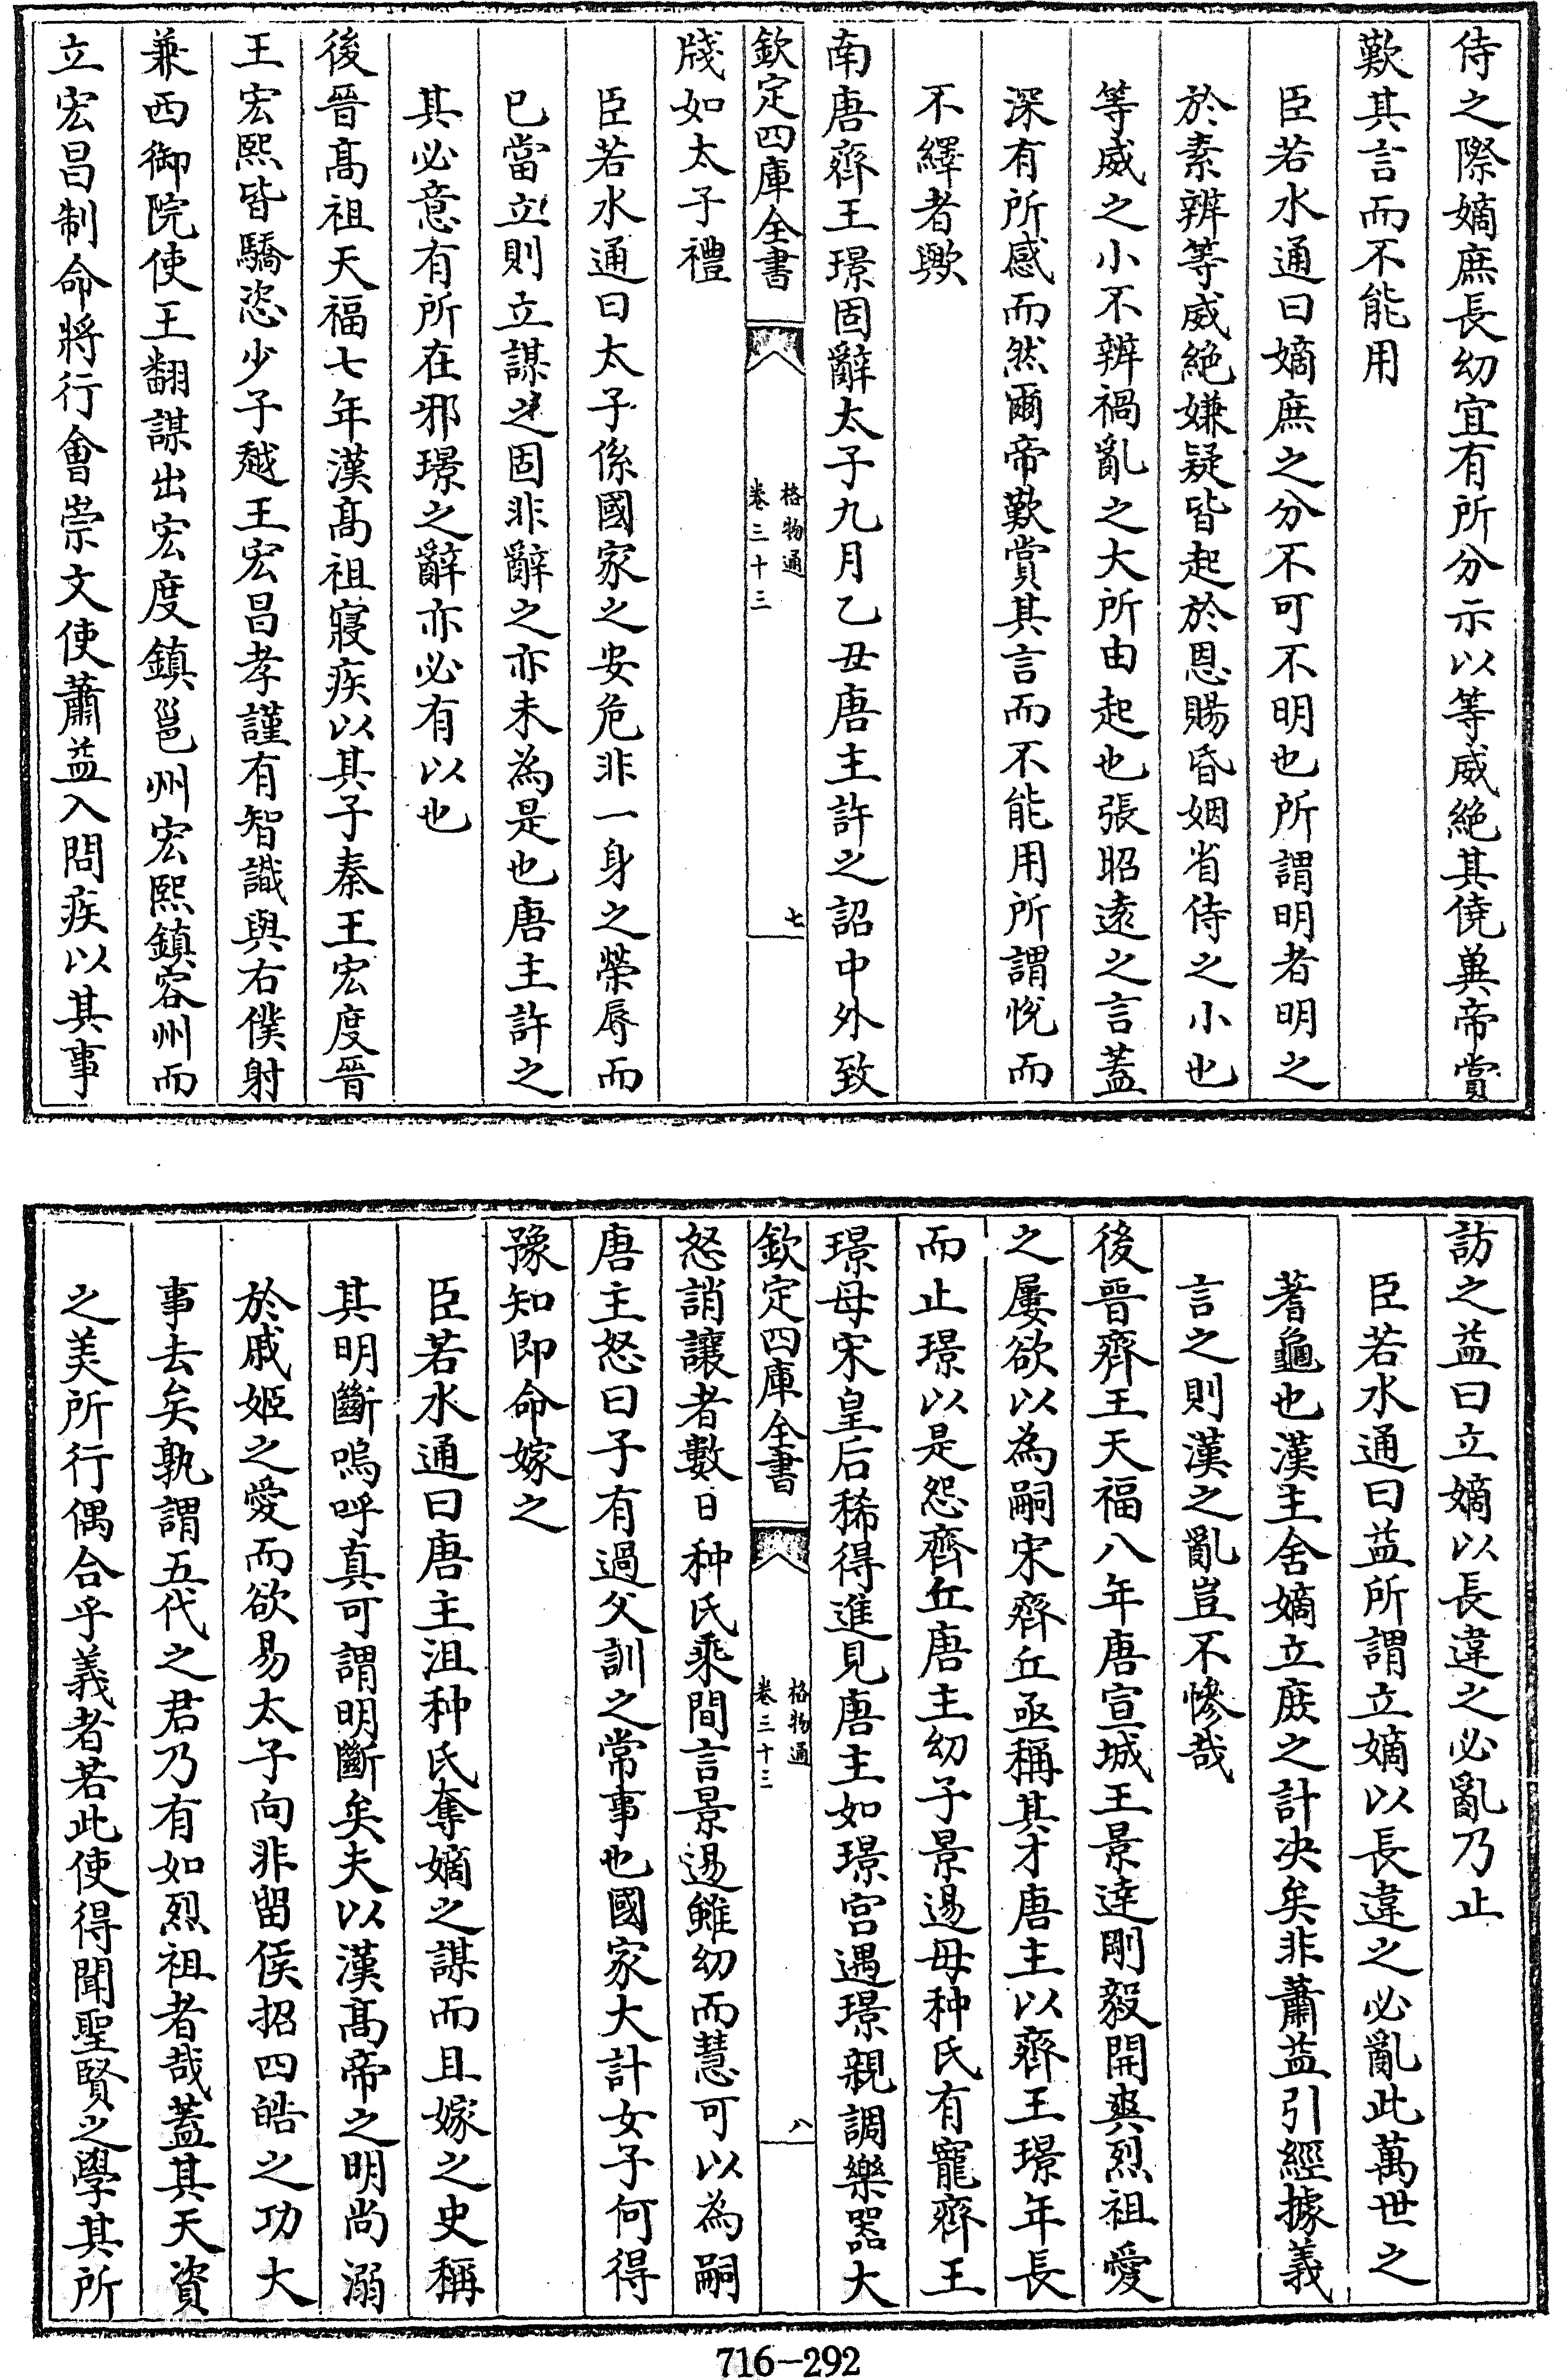 侍之際嫡庶長幼宜有所分示以等威絶其僥兾帝賞
歎其言而不能用
臣若水通曰嫡庶之分不可不明也所謂明者明之
於素辨等威絶嫌疑皆起於恩賜昏姻省侍之小也
等威之小不辨禍亂之大所由起也張昭遠之言葢
深有所感而然爾帝歎賞其言而不能用所謂悅而
不繹者歟
南唐齊王璟固辭太子九月乙丑唐主許之詔中外致
欽定四庫全書
格物通
卷三十三
七
牋如太子禮
臣若水通曰太子係國家之安危非一身之榮辱而
已當立則立謀之固非辭之亦未為是也唐主許之
其必意有所在邪璟之辭亦必有以也
後晉髙祖天福七年漢髙祖寢疾以其子秦王宏度晉
王宏熙皆驕恣少子越王宏昌孝謹有智識與右僕射
兼西御院使王翻謀出宏度鎮邕州宏熙鎮容州而
立宏昌制命將行會崇文使蕭益入問疾以其事
訪之益曰立嫡以長違之必亂乃止
臣若水通曰益所謂立嫡以長違之必亂此萬世之
蓍龜也漢主舍嫡立庻之計决矣非蕭益引經據義
言之則漢之亂豈不慘哉
後晉齊王天福八年唐宣城王景達剛毅開爽烈祖愛
之屢欲以為嗣宋齊丘亟稱其才唐主以齊王璟年長
而止璟以是怨齊丘唐主幼子景逷母种氏有寵齊王
璟母宋皇后稀得進見唐主如璟宫遇璟親調樂器大
欽定四庫全書
格物通
卷三十三
八
怒誚讓者數日种氏乘間言景逷雖幼而慧可以為嗣
唐主怒曰子有過父訓之常事也國家大計女子何得
豫知即命嫁之
臣若水通曰唐主沮种氏奪嫡之謀而且嫁之史稱
其明斷嗚呼真可謂明斷矣夫以漢髙帝之明尚溺
於戚姬之愛而欲易太子向非留侯招四皓之功大
事去矣孰謂五代之君乃有如烈祖者哉葢其天資
之美所行偶合乎義者若此使得聞聖賢之學其所
716-292